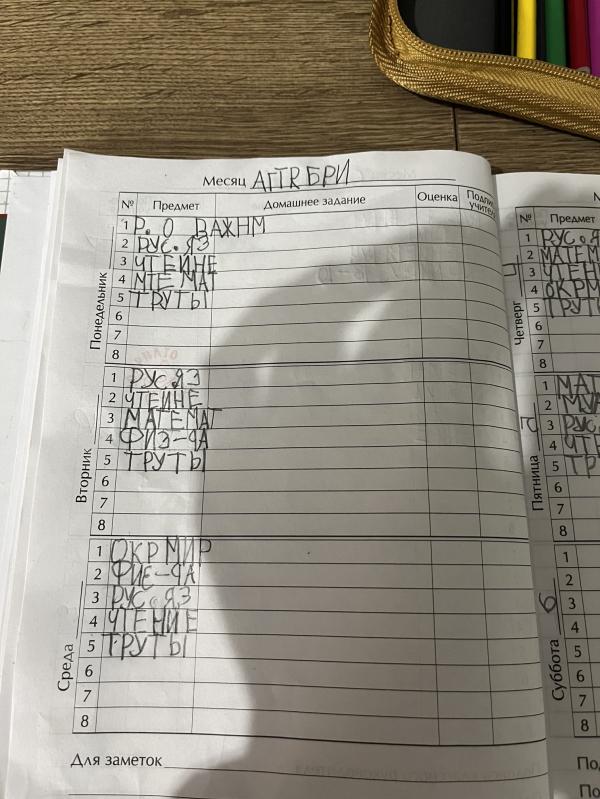 Месяц АПТКБРИ
№ Предмет Домашнее задание Оценка
Понедельник
1 Р. О ВАЖНМ
2 РУС. ЯЗ
3 ЧТЕИНЕ
4 МТЕ МАТ
5 ТРУТЫ
6
7
8
Вторник
1 РУС. ЯЗ
2 ЧТЕИНЕ
3 МАТЕМАТ
4 ФИЗ-РА
5 ТРУТЫ
6
7
8
Среда
1 ОКР МИР
2 ФИЕ-РА
3 РУС. ЯЗ
4 ЧТЕНИЕ
5 ТРУТЫ
6
7
8
Для заметок
№ Предмет
Четверг
1 РУС. Я
2 МАТЕМ
3 ЧТЕН
4 ОКРМ
5 ТРУТ
6
7
8
Пятница
1 МАТ
2
3 РУС
4 ЧТЕ
5 ТР
6
7
8
Суббота 6
1
2
3
4
5
6
7
8